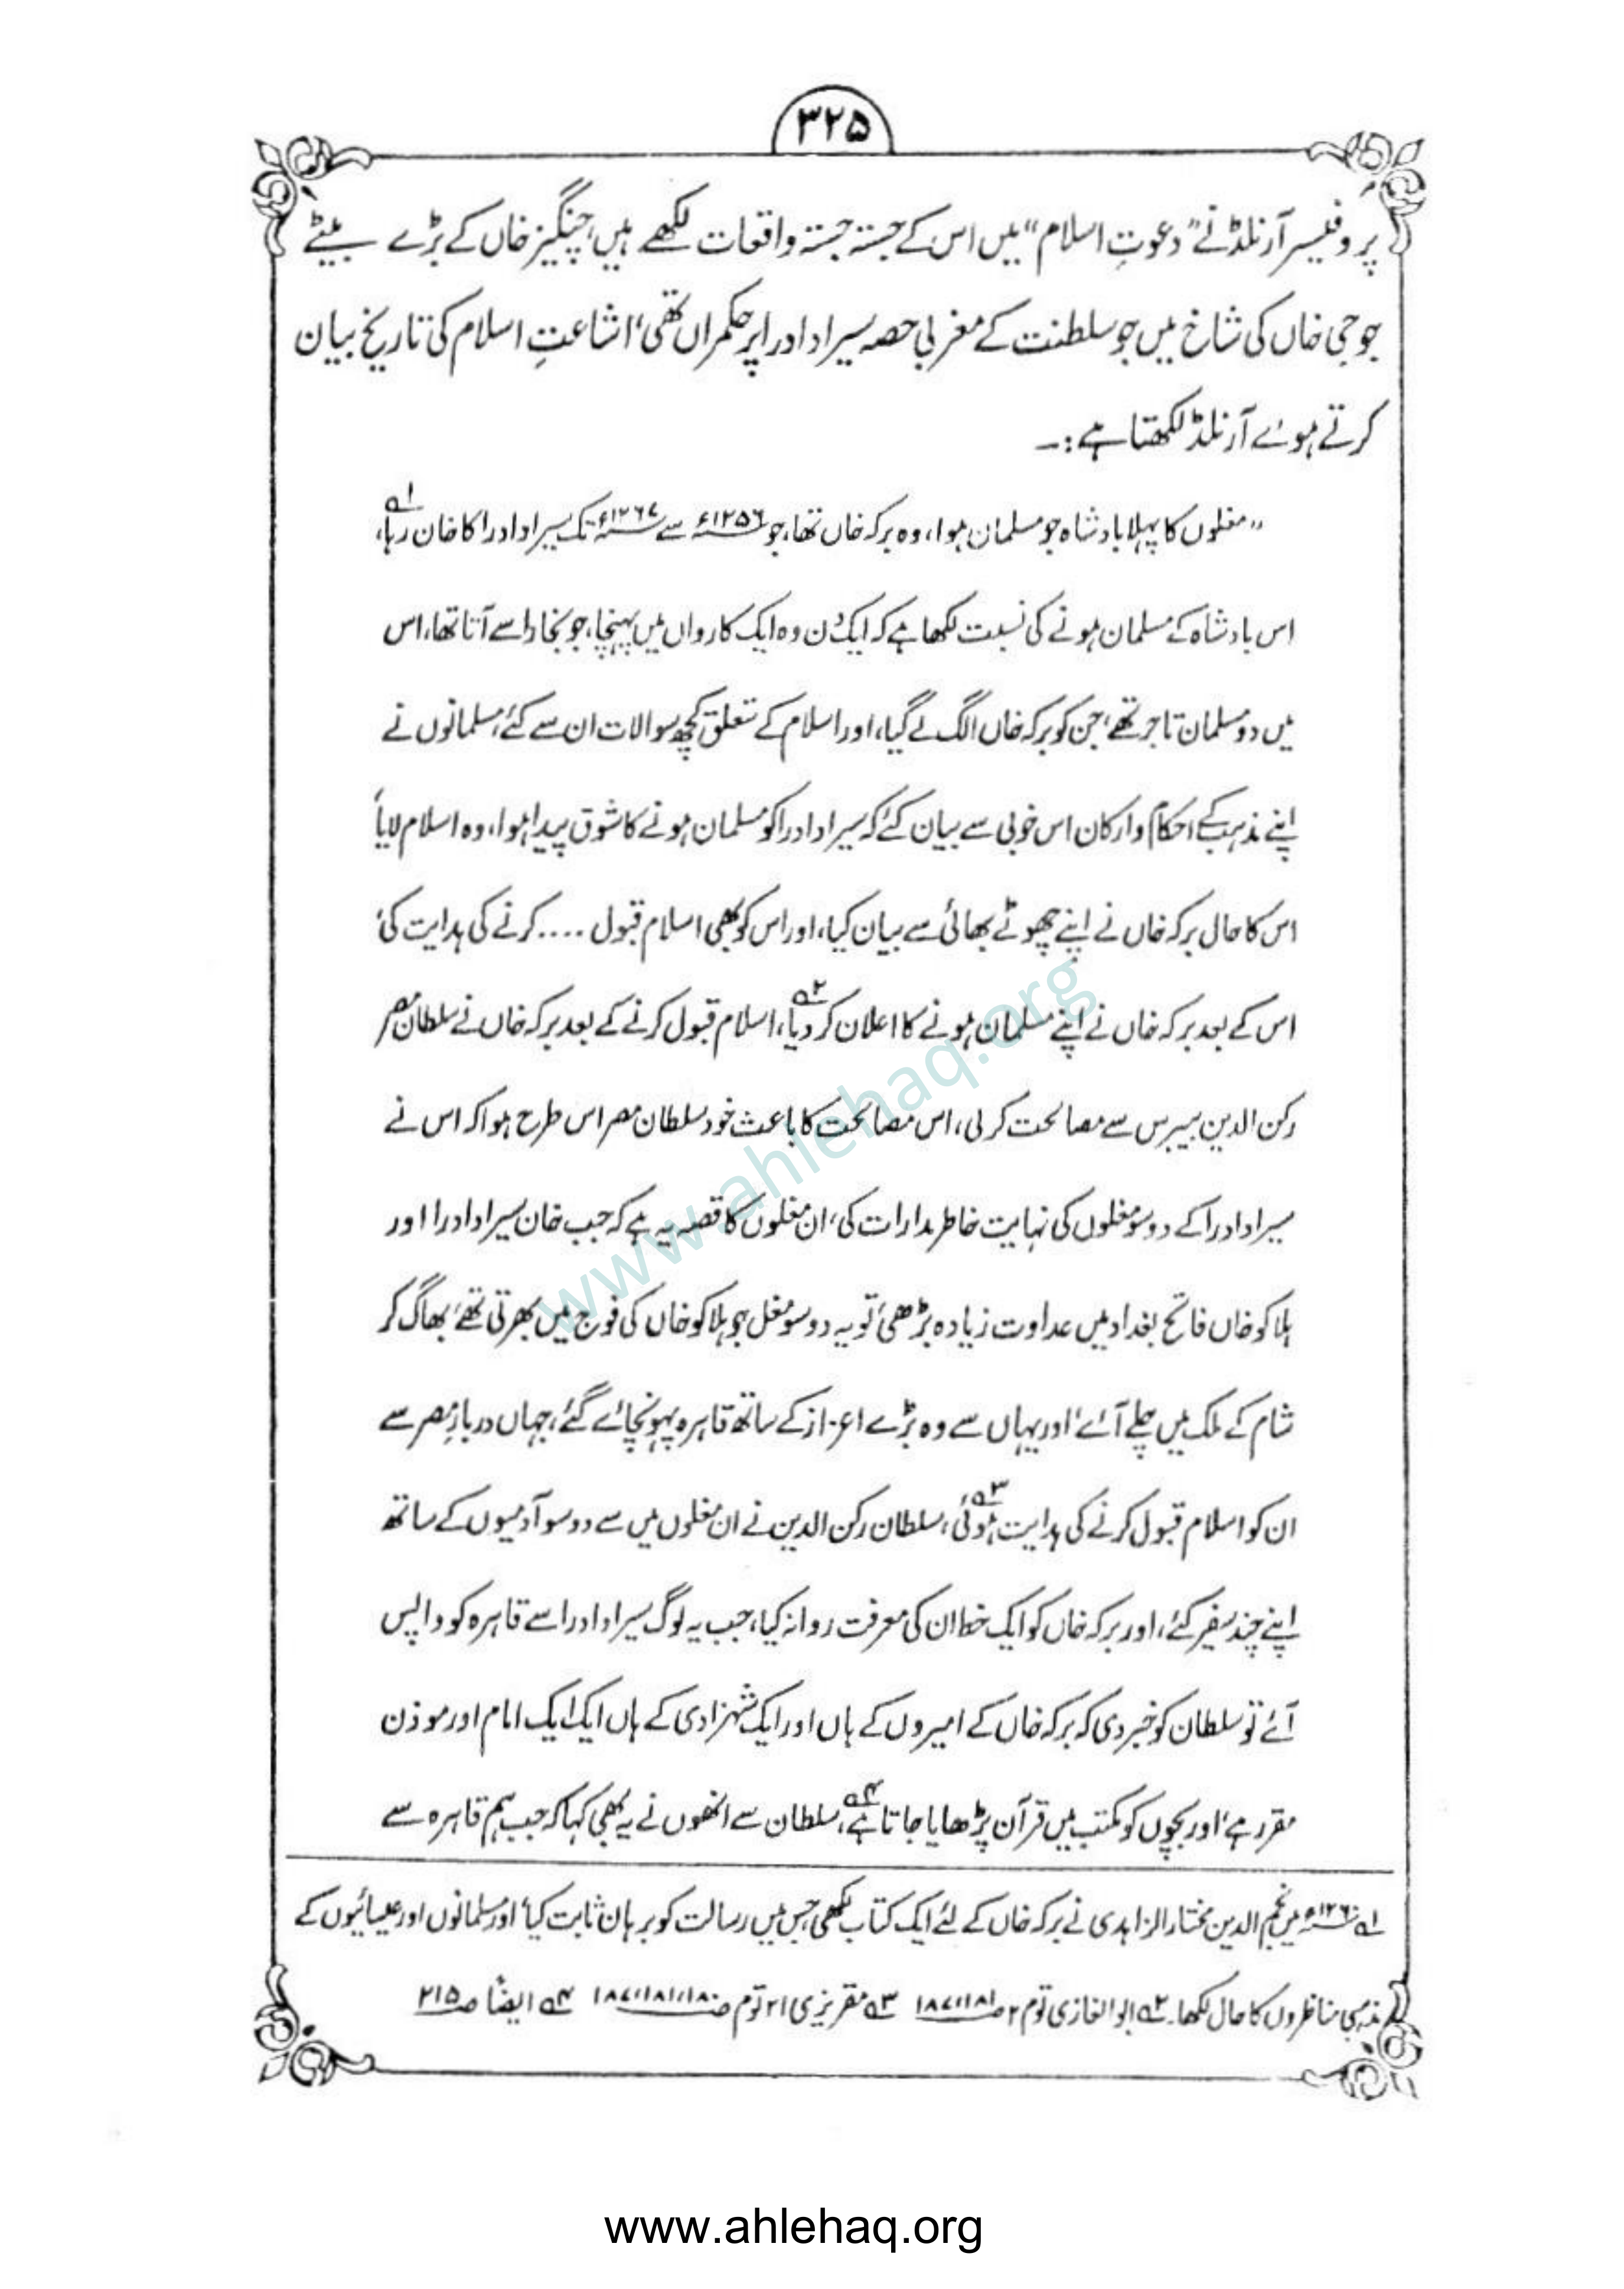 ۳۲۵
پروفیسر آرنلڈ نے "دعوتِ اسلام" میں اس کے جستہ جستہ واقعات لکھے ہیں، چنگیز خاں کے بڑے بیٹے
جوجی خاں کی شاخ میں جو سلطنت کے مغربی حصہ سیر اداد را پر حکمراں تھی، اشاعتِ اسلام کی تاریخ بیان
کرتے ہوئے آرنلڈ لکھتا ہے:۔
"مغلوں کا پہلا بادشاہ جو مسلمان ہوا، وہ برکہ خاں تھا، جو ۱۲۵۶ء سے ۱۲۶۷ء تک سیر اوادرا کا خان رہا،۱ھ
اس بادشاہ کے مسلمان ہونے کی نسبت لکھا ہے کہ ایک دن وہ ایک کارواں میں پہنچا، جو بخارا سے آتا تھا، اس
میں دو مسلمان تاجر تھے، جن کو برکہ خاں الگ لے گیا، اور اسلام کے متعلق کچھ سوالات ان سے کئے، مسلمانوں نے
اپنے مذہب کے احکام وارکان اس خوبی سے بیان کئے کہ سیر اداد را کو مسلمان ہونے کا شوق پیدا ہوا، وہ اسلام لایا،
اس کا حال برکہ خاں نے اپنے چھوٹے بھائی سے بیان کیا، اور اس کو بھی اسلام قبول .... کرنے کی ہدایت کی،
اس کے بعد برکہ خاں نے اپنے مسلمان ہونے کا اعلان کر دیا،۲ھ اسلام قبول کرنے کے بعد برکہ خاں نے سلطان مصر
رکن الدین بیبرس سے مصالحت کر لی، اس مصالحت کا باعث خود سلطان مصر اس طرح ہوا کہ اس نے
سیر اوادرا کے دو سو مغلوں کی نہایت خاطر مدارات کی، ان مغلوں کا قصہ یہ ہے کہ جب خان سیر اوادرا اور
ہلاکو خاں فاتح بغداد میں عداوت زیادہ بڑھی، تو یہ دو سو مغل جو ہلاکو خاں کی فوج میں بھرتی تھے، بھاگ کر
شام کے ملک میں چلے آئے، اور یہاں سے وہ بڑے اعزاز کے ساتھ قاہرہ پہونچائے گئے، جہاں دربارِ مصر سے
ان کو اسلام قبول کرنے کی ہدایت ہوئی،۳ھ سلطان رکن الدین نے ان مغلوں میں سے دو سو آدمیوں کے ساتھ
اپنے چند سفیر کئے، اور برکہ خاں کو ایک خط ان کی معرفت روانہ کیا، جب یہ لوگ سیر اوادرا سے قاہرہ کو واپس
آئے تو سلطان کو خبر دی کہ برکہ خاں کے امیروں کے ہاں اور ایک شہزادی کے ہاں ایک ایک امام اور موذن
مقرر ہے، اور بچوں کو مکتب میں قرآن پڑھایا جاتا ہے،۴ھ سلطان سے انھوں نے یہ بھی کہا کہ جب ہم قاہرہ سے
۱ھ ۱۲۶۰ء میں نجم الدین مختار الزاہدی نے برکہ خاں کے لئے ایک کتاب لکھی جس میں رسالت کو برہان ثابت کیا، اور مسلمانوں اور عیسائیوں کے
مذہبی مناظروں کا حال لکھا۔ ۲ھ ابو الغازی توم ۲ ص۱۸۱،۱۸۷ ۳ھ مقریزی ۲۱ توم ص۱۸۰،۱۸۱،۱۸۷ ۴ھ ایضًا ص۲۱۵
www.ahlehaq.org
www.ahlehaq.org